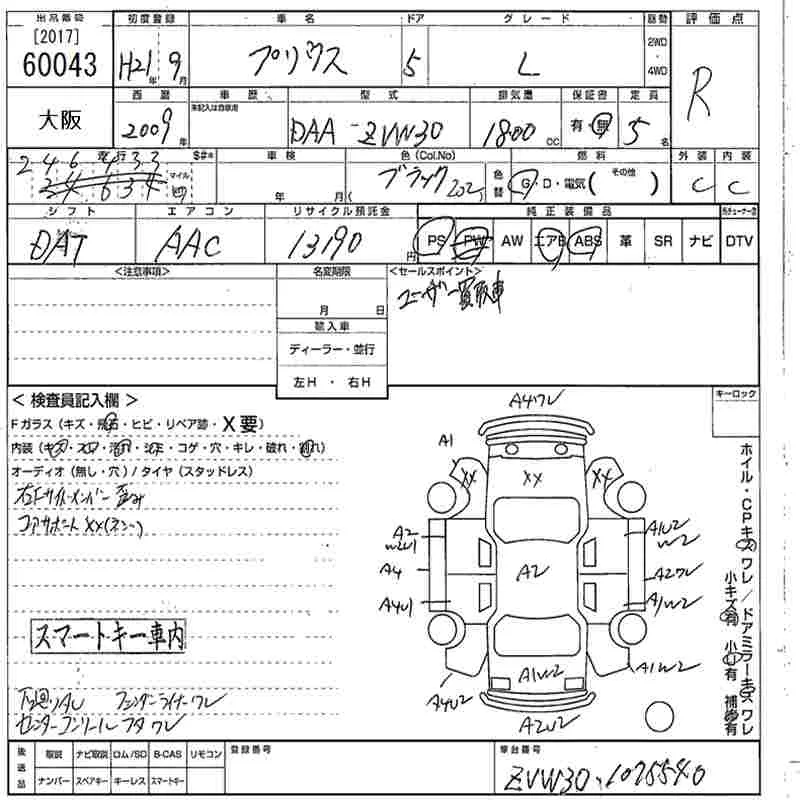 出品番号 初度登録 車名 ドア グレード 駆動 評価点
[2017]
60043 H21年 9月 プリウス 5 L 2WD・4WD R
大阪 西暦 車歴 型式 排気量 保証書 定員
未記入は自家用
2009年 DAA-ZVW30 1800cc 有・無 5名
走行 S#* 車検 色(Col.No) 燃料 外装 内装
246433 マイル
年 月( ブラック202) 色替 G・D・電気( その他 ) C C
シフト エアコン リサイクル預託金 純正装備品
DAT AAC 13190円 PS PW AW エアB ABS 革 SR ナビ DTV
<注意事項> 名変期限 <セールスポイント>
月 日 ユーザー買取車
輸入車
ディーラー・並行
左H・右H
<検査員記入欄> キーロック
Fガラス(キズ・飛石・ヒビ・リペア跡・X要)
内装(キズ・スレ・汚れ・シミ・コゲ・穴・キレ・破れ・割れ)
オーディオ(無し・穴)/タイヤ(スタッドレス)
右Fサイドメンバー歪み
コアサポートXX(ネジ)
スマートキー車内
下廻りサビ フェンダーライナーワレ
センターコンソールフタワレ
A4ワレ
A1
XX XX XX
A2 W2U1 A1U2 W2
A4 A2 A2ワレ
A4U1 A1W2
A4U2 A1W2 A1W2
A2U2
ホイル・CPキズワレ/ドアミラーキズワレ
小キズ有 小凹有 補修有
後送品 取説 ナビ取説 ロム/SD B-CAS リモコン 登録番号 車台番号
ナンバー スペアキー キーレス スマートキー ZVW30-1075540